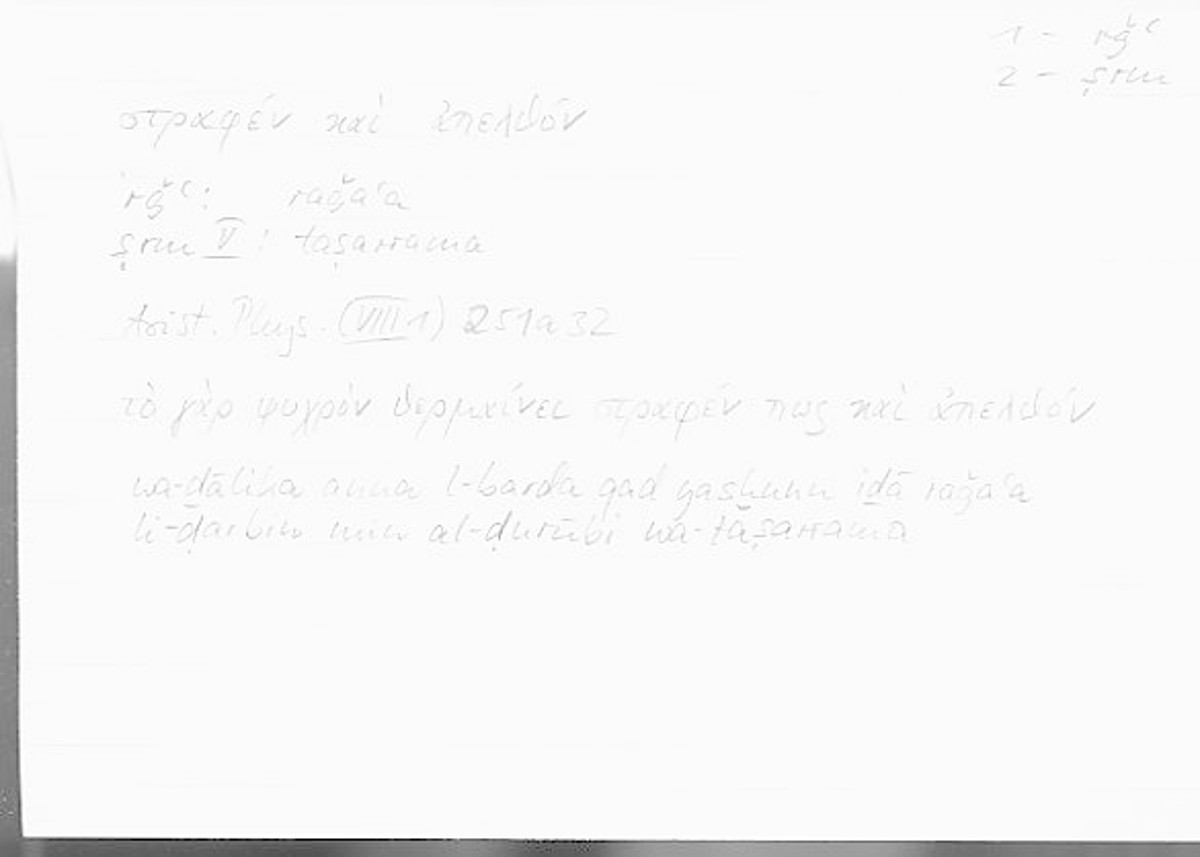 1 - rǧʿ
2 - ṣrm
στραφέν καὶ ἀπελθόν
rǧʿ: raǧaʿa
ṣrm V: taṣarrama
Arist. Phys. (VIII 1) 251a32
τὸ γὰρ ψυχρὸν θερμαίνει στραφέν πως καὶ ἀπελθόν
wa-ḏālika anna l-barda qad yasḫunu iḏā raǧaʿa
li-ḍarbin min al-ḍurūbi wa-taṣarrama